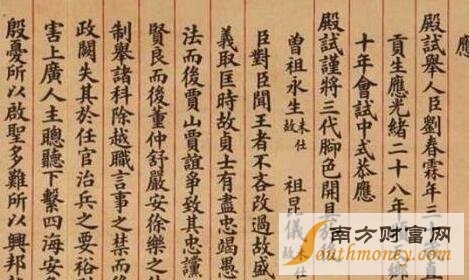 應
殿試舉人臣劉春霖年三十
貢生應光緒二十八年
十年會試中式恭應
殿試謹將三代脚色開具於後
曾祖永生未仕故 祖昆儀未仕故
臣對臣聞王者不吝改過故盛
義取匡時故貞士有盡忠竭愚
法而後賈山賈誼爭致其忠讜
賢良而後董仲舒嚴安徐樂之
制舉諸科除越職言事之禁而
政闕失其於任官治兵之要裕
害上廣人主聰聽下繫四海安
殷憂所以啟聖多難所以興邦
南方财富网
southmoney.com